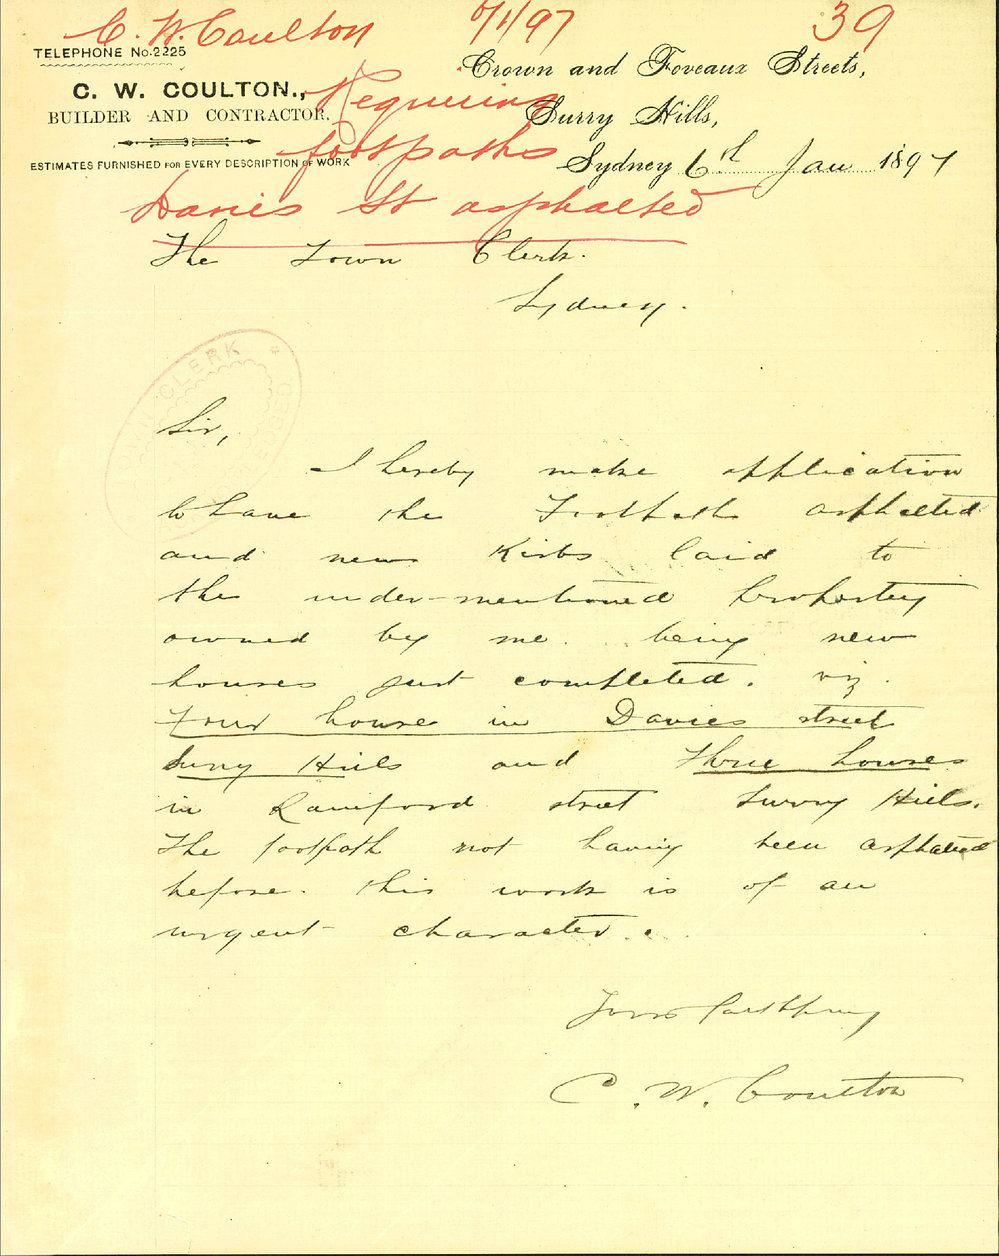 C. W. Coulton 6/1/97 39
TELEPHONE No. 2225
C. W. COULTON.,
BUILDER AND CONTRACTOR.
ESTIMATES FURNISHED FOR EVERY DESCRIPTION OF WORK
Crown and Foveaux Streets,
Surry Hills,
Sydney 6th Jan 1897
Requiring
footpaths
Davies St asphalted
The Town Clerk.
Sydney.
TOWN CLERK
Sir,
I hereby make application
to have the Footpath asphalted
and new Kirbs laid to
the under-mentioned Property
owned by me. being new
houses just completed. viz.
Four house in Davies street
Surry Hills and Three houses
in Rainford street Surry Hills.
The footpath not having been asphalted
before. this work is of an
urgent character.
Yours faithfully
C. W. Coulton